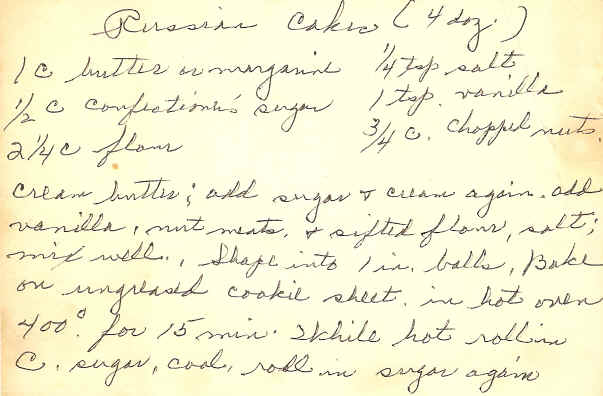 Russian Cakes (4 doz.)
1 C butter or margarine 1/4 tsp salt
1/2 C confectioner's sugar 1 tsp. vanilla
2 1/4 C flour 3/4 C. chopped nuts.
Cream butter; add sugar & cream again. add
vanilla, nut meats, & sifted flour, salt;
mix well., Shape into 1 in. balls, Bake
on ungreased cookie sheet. in hot oven
400°. for 15 min. While hot roll in
C. sugar, cool, roll in sugar again